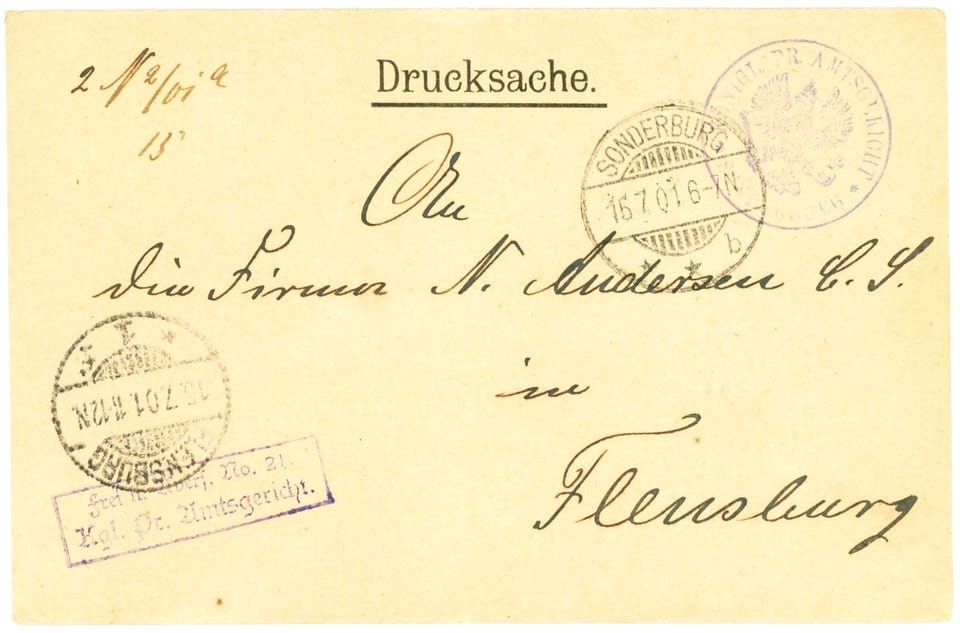 2 N 2/01 a
13
Drucksache.
KÖNIGL. PR. AMTSGERICHT *
SONDERBURG
15.7.01.6-7N.
b
* *
An
die Firma N. Andersen C. S.
in
Flensburg
FLENSBURG 1
15.7.01.11-12N.
* 1 *
Frei lt. Avers. No. 21.
Kgl. Pr. Amtsgericht.